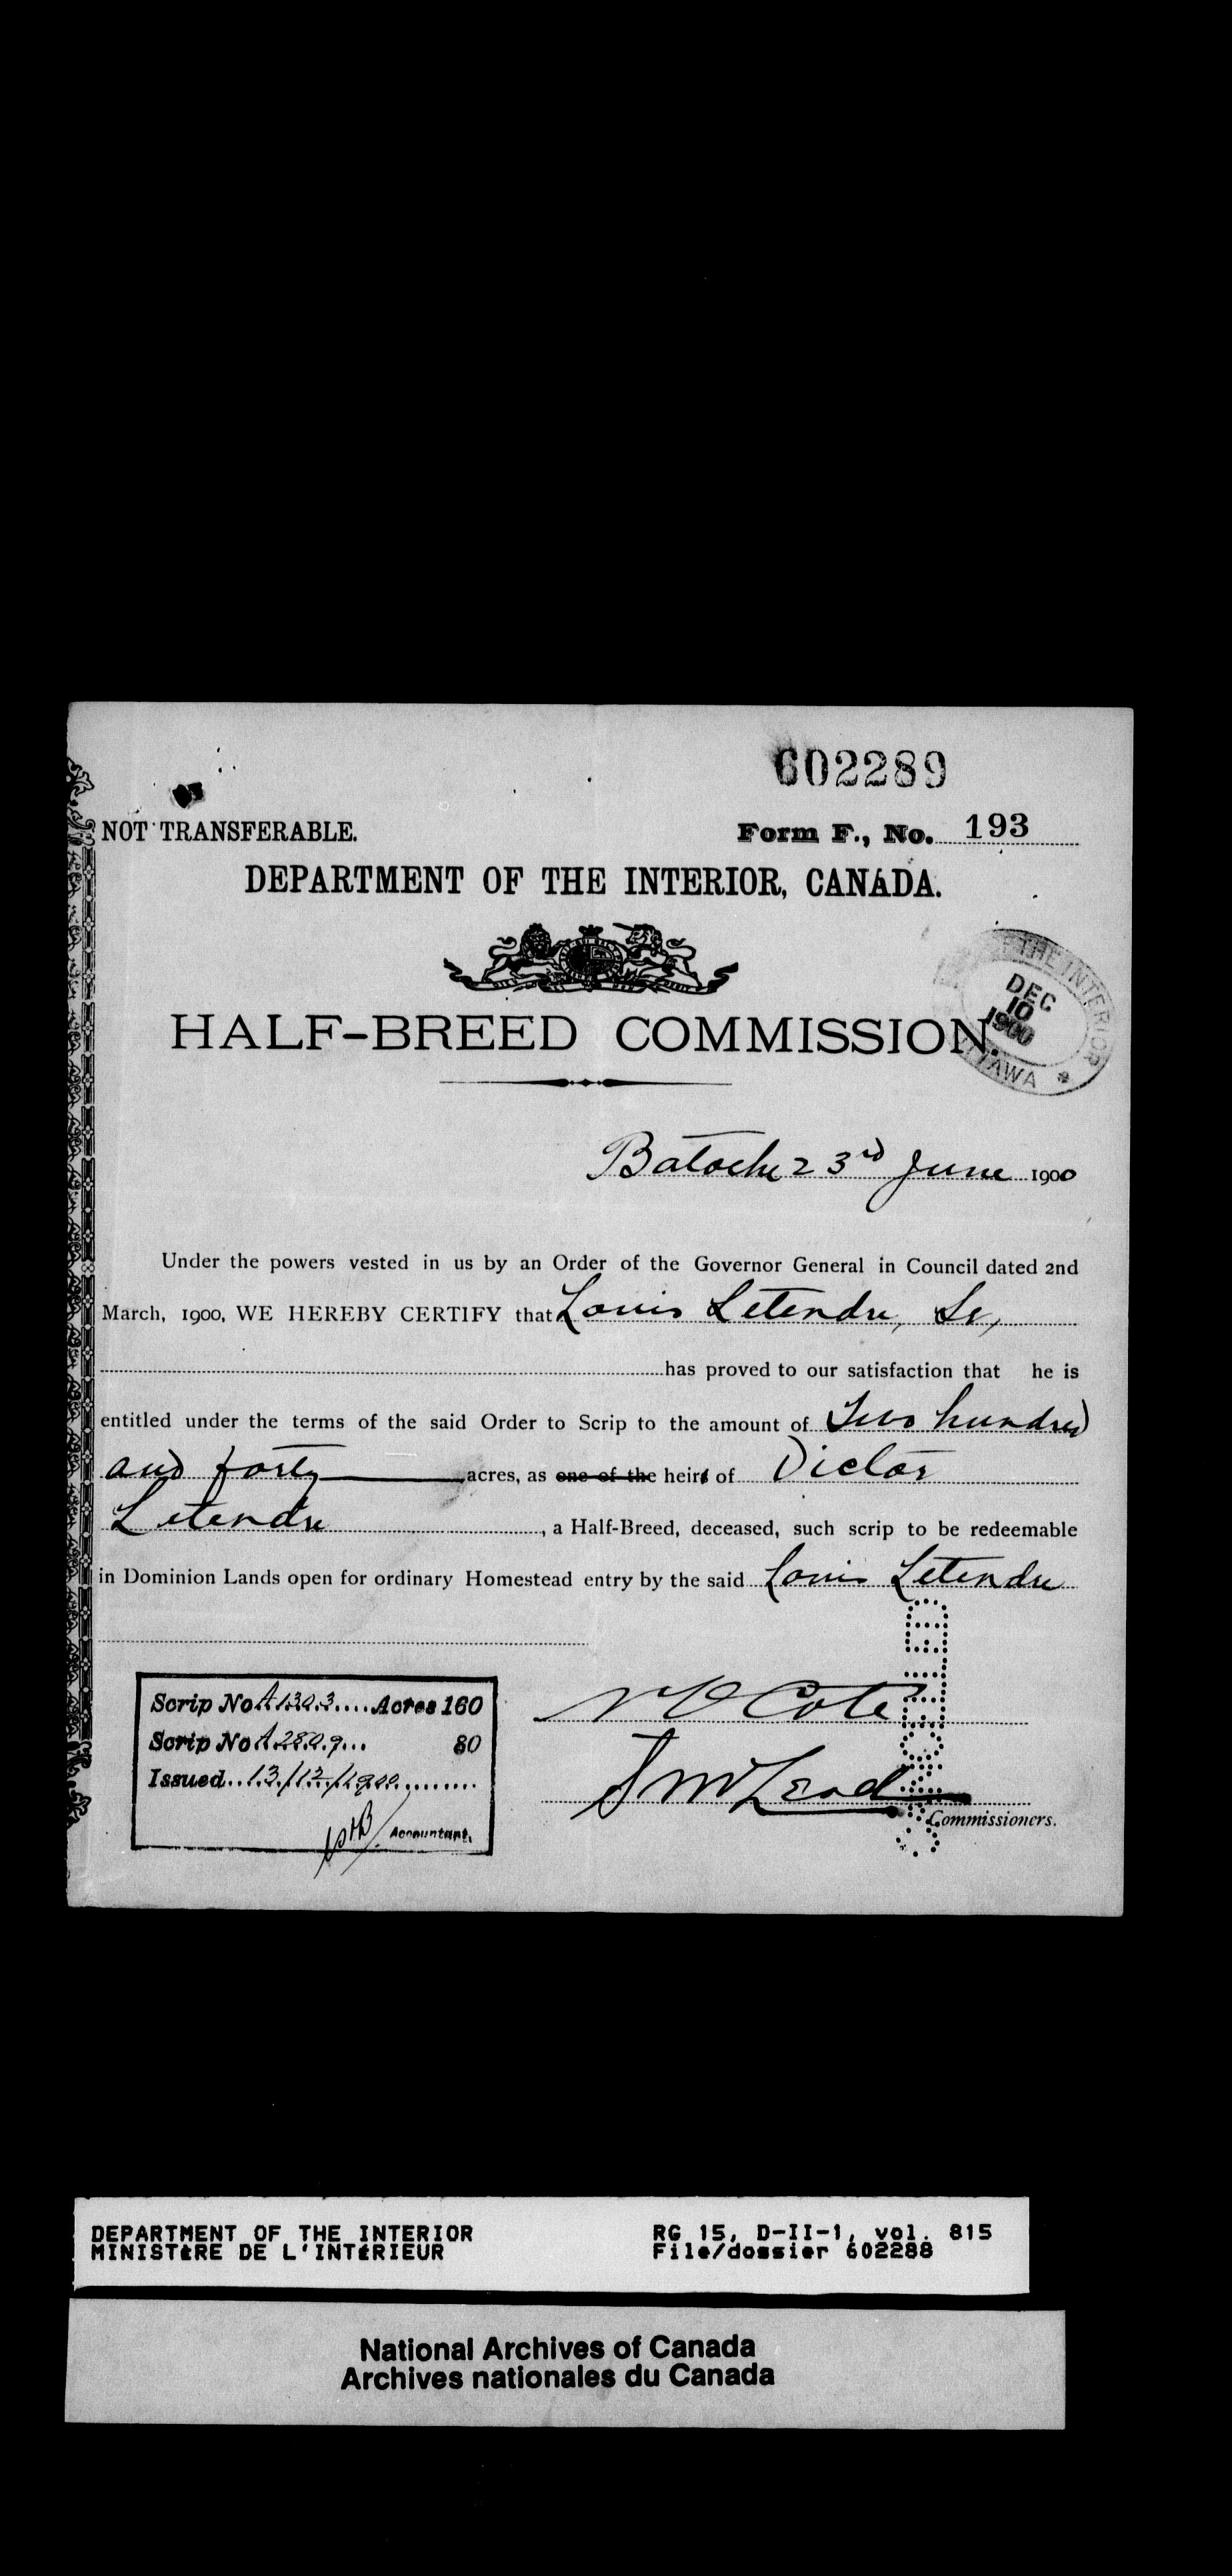 602289
NOT TRANSFERABLE.
Form F., No. 193
DEPARTMENT OF THE INTERIOR, CANADA.
HALF-BREED COMMISSION.
THE INTERIOR
DEC
10
1900
Batoche 23rd June 1900
Under the powers vested in us by an Order of the Governor General in Council dated 2nd
March, 1900, WE HEREBY CERTIFY that Louis Letendre, Sr,
has proved to our satisfaction that he is
entitled under the terms of the said Order to Scrip to the amount of Two hundred
and forty acres, as one of the heirs of Victor
Letendre, a Half-Breed, deceased, such scrip to be redeemable
in Dominion Lands open for ordinary Homestead entry by the said Louis Letendre
Scrip No A1303 Acres 160
Scrip No A2809 80
Issued 13/12/1900
Accountant.
N O Cote
Commissioners.
DEPARTMENT OF THE INTERIOR
MINISTÈRE DE L'INTÉRIEUR
RG 15, D-II-1, vol. 815
File/dossier 602288
National Archives of Canada
Archives nationales du Canada